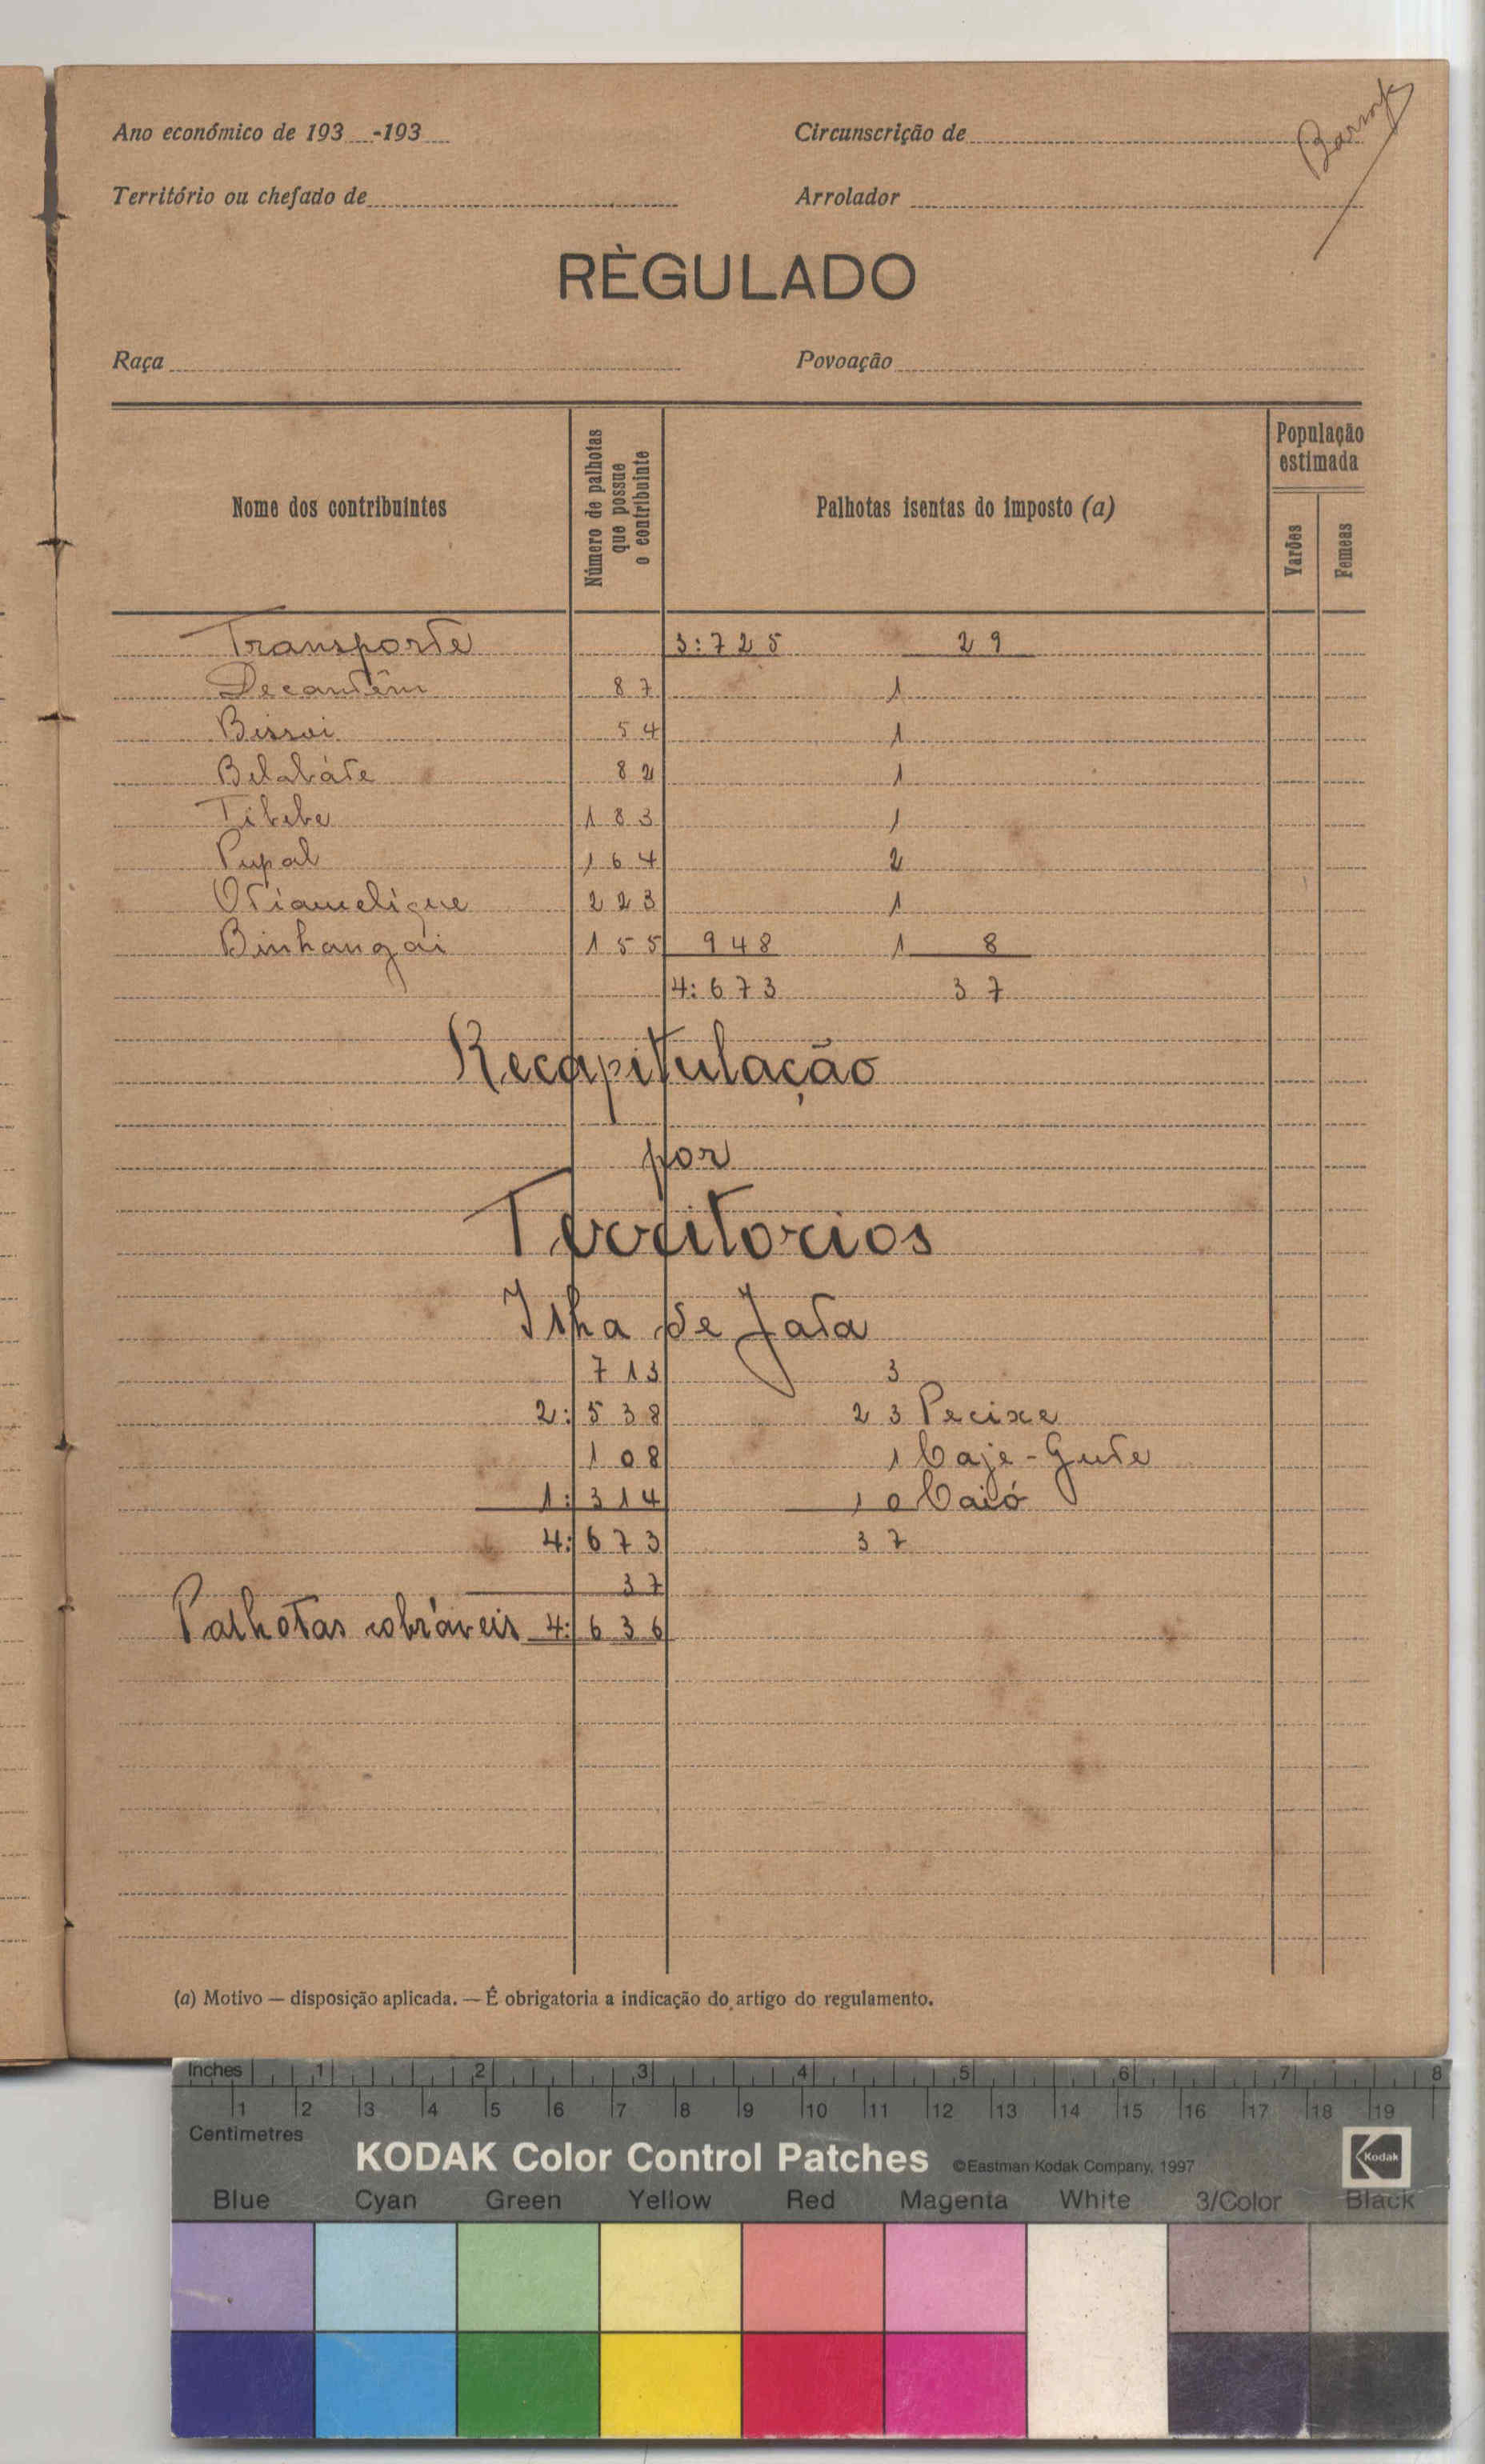 Ano económico de 193 -193
Circunscrição de
Território ou chefado de
Arrolador
RÈGULADO
Raça
Povoação
Nome dos contribuintes
Número de palhotas que possue o contribuinte
Palhotas isentas do imposto (a)
População estimada
Varões
Femeas
Transporte 3:725 29
Decantêm 87 1
Bissoi 54 1
Belabáte 82 1
Tibebe 183 1
Pupal 164 2
Utiamelique 223 1
Binhangai 155 948 1 8
4:673 37
Recapitulação
por
Territorios
Ilha de Jata
713 3
2:538 23 Pecixe
108 1 Caje-Gute
1:314 10 Caió
4:673 37
37
Palhotas cobráveis 4:636
(a) Motivo — disposição aplicada. — É obrigatoria a indicação do artigo do regulamento.
Inches 1 2 3 4 5 6 7 8
1 2 3 4 5 6 7 8 9 10 11 12 13 14 15 16 17 18 19
Centimetres
KODAK Color Control Patches ©Eastman Kodak Company, 1997 Kodak
Blue Cyan Green Yellow Red Magenta White 3/Color Black